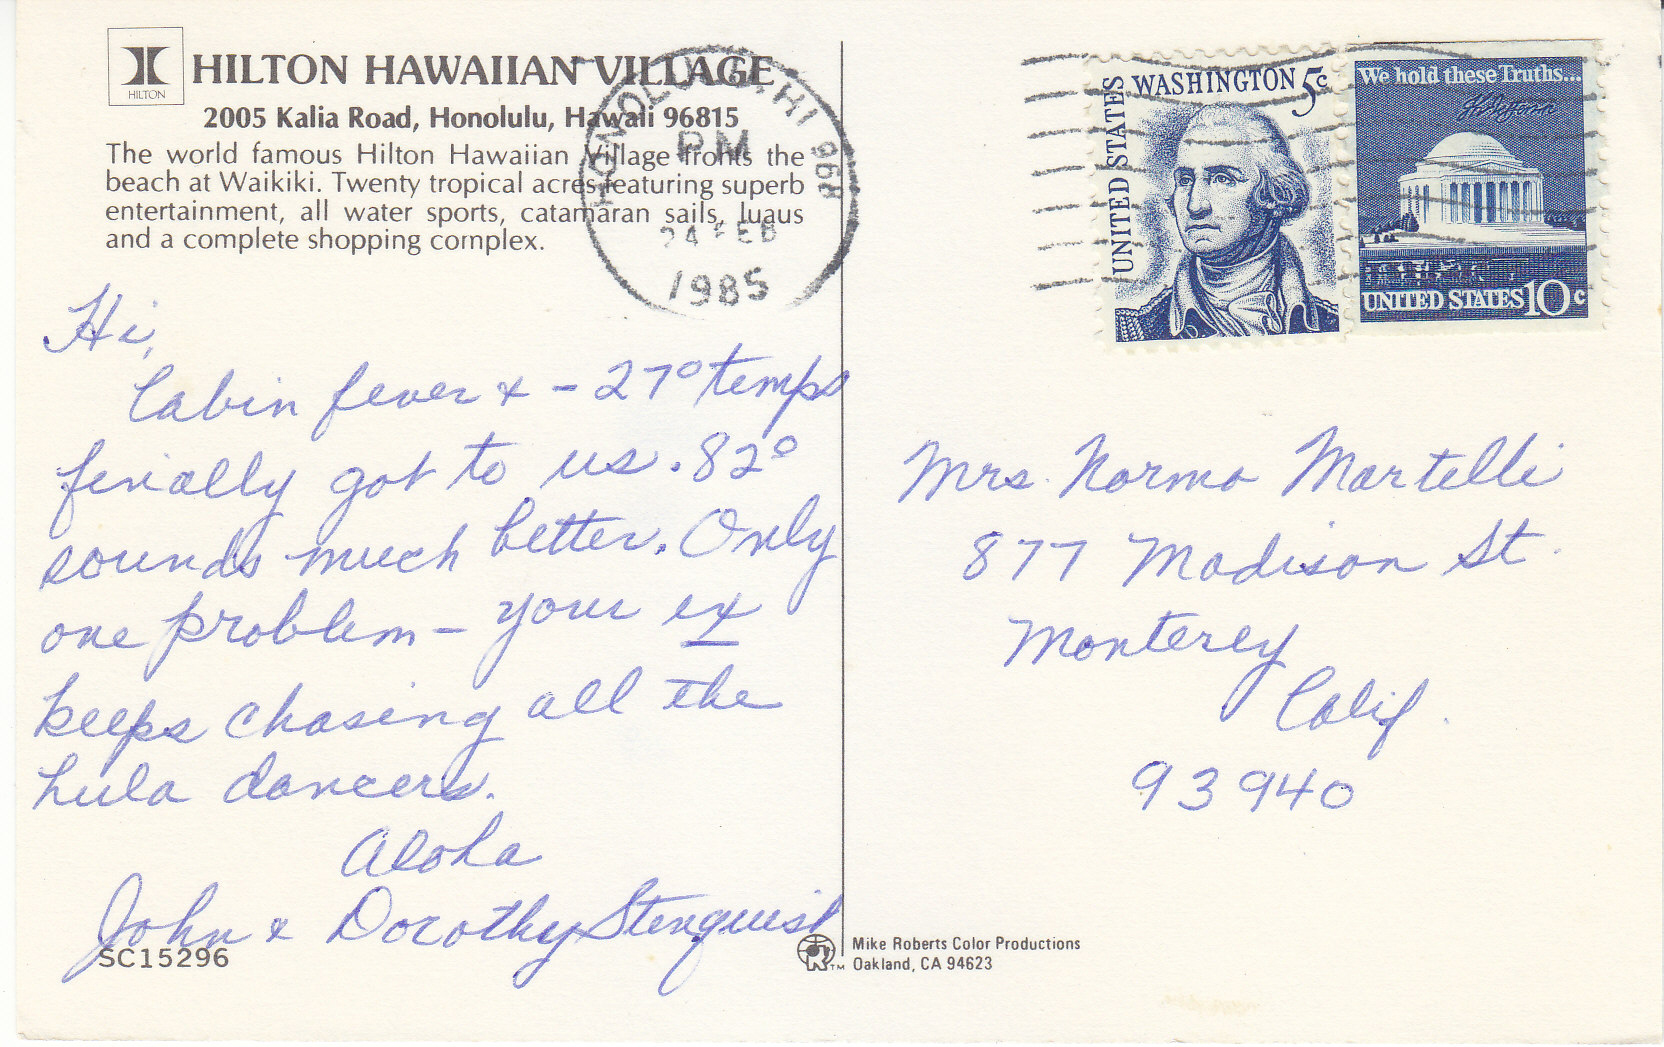 HILTON
HILTON HAWAIIAN VILLAGE
2005 Kalia Road, Honolulu, Hawaii 96815
The world famous Hilton Hawaiian Village fronts the
beach at Waikiki. Twenty tropical acres featuring superb
entertainment, all water sports, catamaran sails, luaus
and a complete shopping complex.
HONOLULU, HI 968
PM
24 FEB
1985
UNITED STATES
WASHINGTON 5c
We hold these Truths...
UNITED STATES 10c
Hi,
Cabin fever & -27° temps
finally got to us. 82°
sounds much better. Only
one problem - your ex
keeps chasing all the
hula dancers.
Aloha
John & Dorothy Stenquist
SC15296
Mrs. Norma Martelli
877 Madison St.
Monterey
Calif.
93940
Mike Roberts Color Productions
TM Oakland, CA 94623